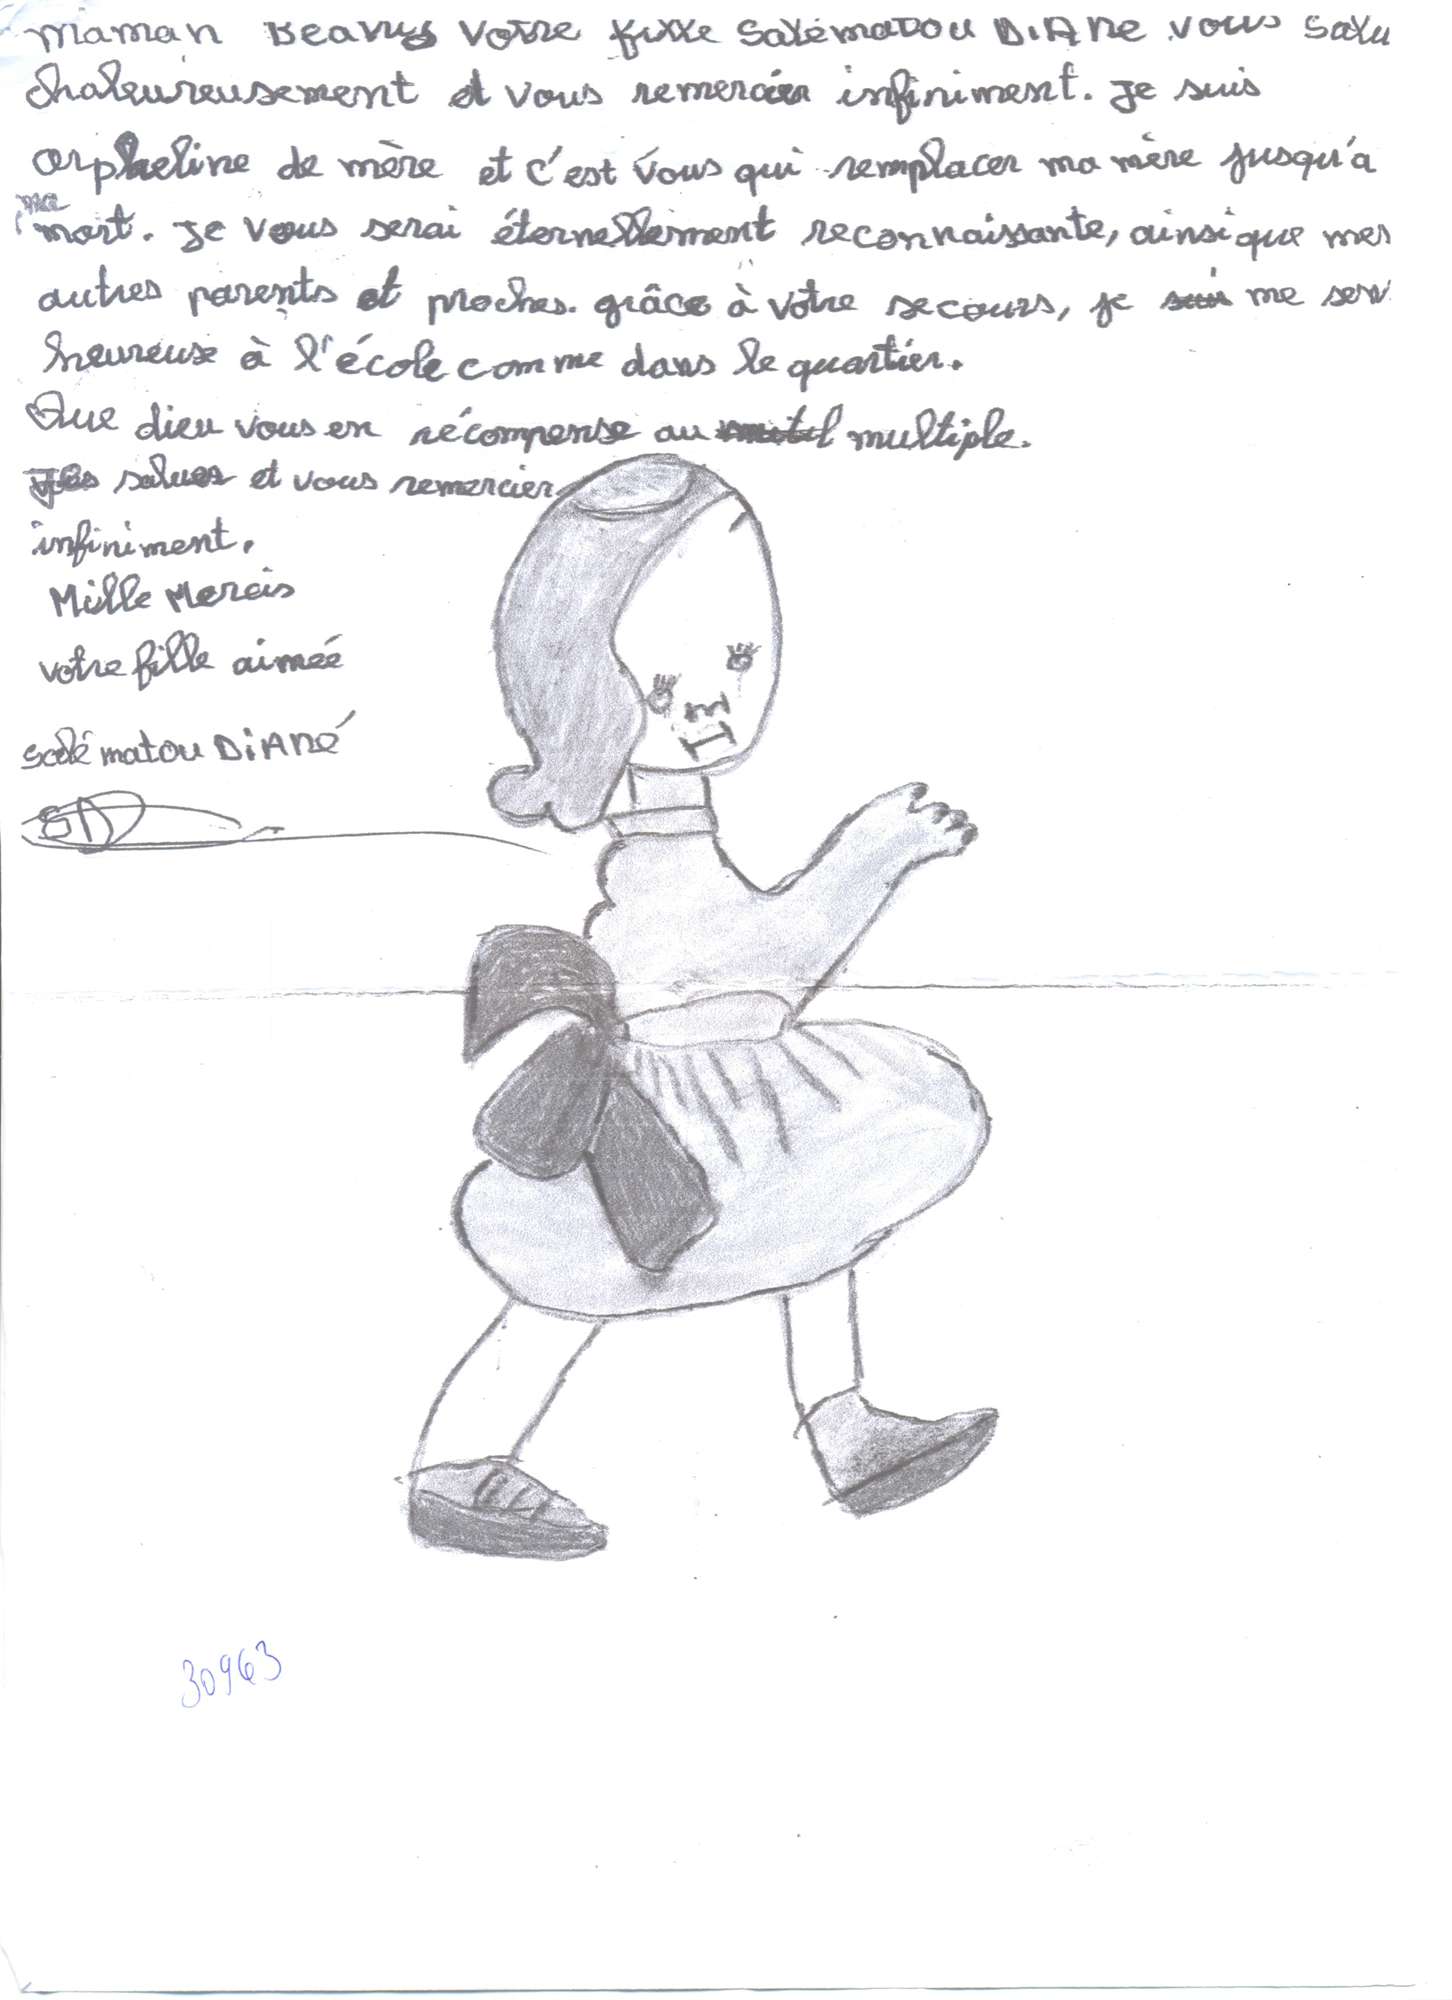 maman Beavys votre fille Salématou DiANe vous salu
chaleureusement et vous remercier infiniment. Je suis
orpheline de mère et c'est vous qui remplacer ma mère jusqu'a
ma
mort. Je vous serai éternellement reconnaissante, ainsi que mes
autres parents et proches. grâce à votre secours, je suis me sen
heureuse à l'école comme dans le quartier.
Que dieu vous en récompense au multiple.
salues et vous remercier
infiniment.
Mille Mercis
votre fille aimée
Salématou DiANé
SD
30963